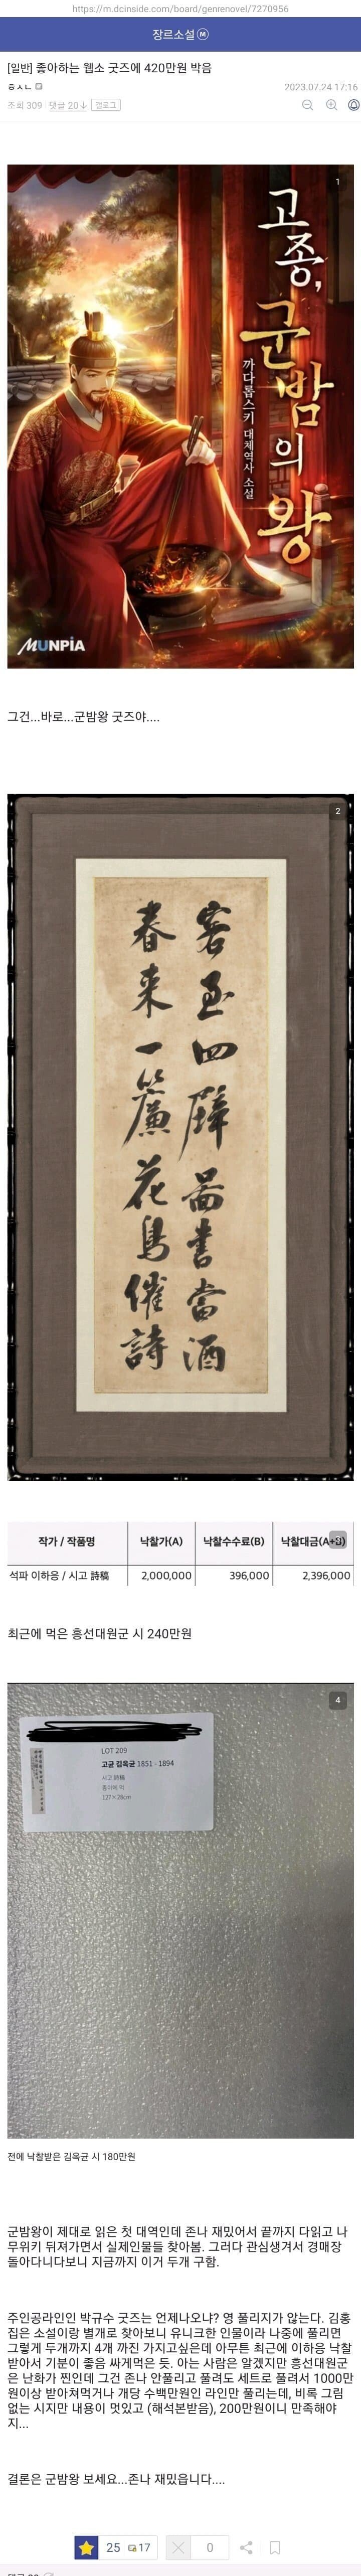 https://m.dcinside.com/board/genrenovel/7270956
장르소설 ⓜ
[일반] 좋아하는 웹소 굿즈에 420만원 박음
ㅎㅅㄴ
2023.07.24 17:16
조회 309
댓글 20↓
갤로그
1
고종,
군밤의
왕
까다롭스키 대체역사 소설
MUNPIA
그건...바로...군밤왕 굿즈야....
2
客至四牌畾書當酒
春来一簾花鳥催詩
작가 / 작품명
낙찰가(A)
낙찰수수료(B)
낙찰대금(A+B)
석파 이하응 / 시고 詩稿
2,000,000
396,000
2,396,000
최근에 먹은 흥선대원군 시 240만원
4
LOT 209
고균 김옥균 1851 - 1894
시고 詩稿
종이에 먹
127×28cm
전에 낙찰받은 김옥균 시 180만원
군밤왕이 제대로 읽은 첫 대역인데 존나 재밌어서 끝까지 다읽고 나
무위키 뒤져가면서 실제인물들 찾아봄. 그러다 관심생겨서 경매장
돌아다니다보니 지금까지 이거 두개 구함.
주인공라인인 박규수 굿즈는 언제나오냐? 영 풀리지가 않는다. 김홍
집은 소설이랑 별개로 찾아보니 유니크한 인물이라 나중에 풀리면
그렇게 두개까지 4개 까진 가지고싶은데 아무튼 최근에 이하응 낙찰
받아서 기분이 좋음 싸게먹은 듯. 아는 사람은 알겠지만 흥선대원군
은 난화가 찐인데 그건 존나 안풀리고 풀려도 세트로 풀려서 1000만
원이상 받아쳐먹거나 개당 수백만원인 라인만 풀리는데, 비록 그림
없는 시지만 내용이 멋있고 (해석본받음), 200만원이니 만족해야
지...
결론은 군밤왕 보세요...존나 재밌읍니다....
25
17
0